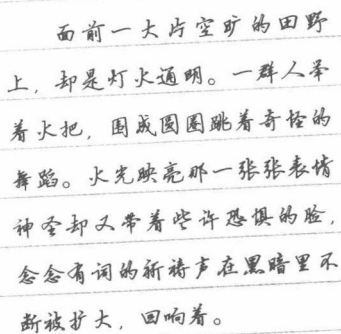 面前一大片空旷的田野
上，却是灯火通明。一群人举
着火把，围成圆圈跳着奇怪的
舞蹈。火光映亮那一张张表情
神圣却又带着些许恐惧的脸，
念念有词的祈祷声在黑暗里不
断被扩大，回响着。